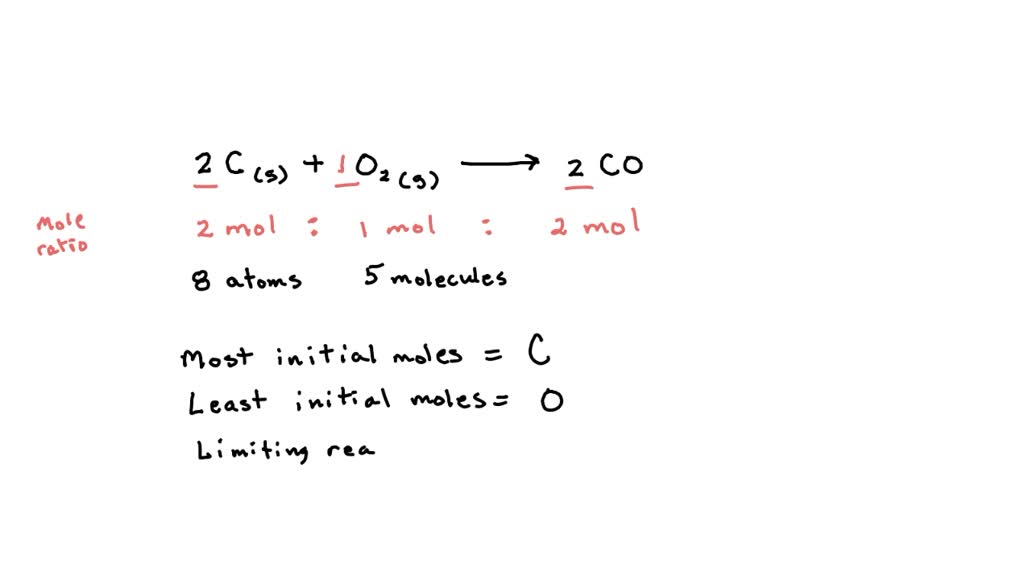 2 C (s) + 1 O₂ (g) ⟶ 2 CO
Mole ratio
2 mol : 1 mol : 2 mol
8 atoms 5 molecules
Most initial moles = C
Least initial moles = O
Limiting rea